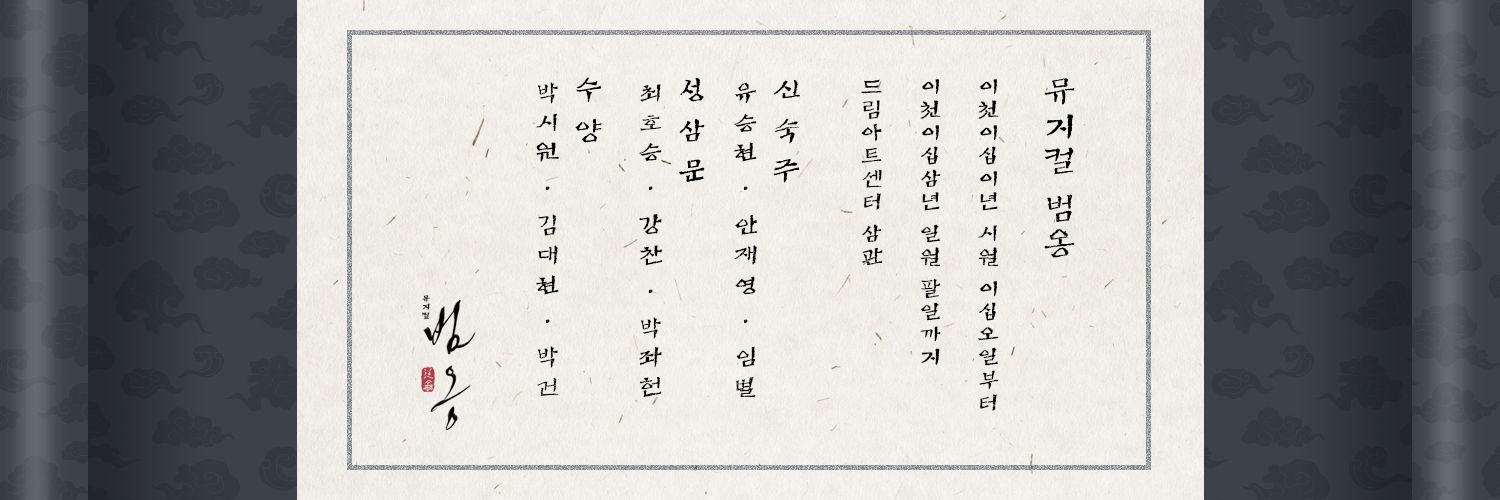 뮤지컬 범옹
이천이십이년 시월 이십오일부터
이천이십삼년 일월 팔일까지
드림아트센터 삼관
신숙주
유승현 · 안재영 · 임별
성삼문
최호승 · 강찬 · 박좌헌
수양
박시원 · 김대현 · 박건
뮤지컬
범옹